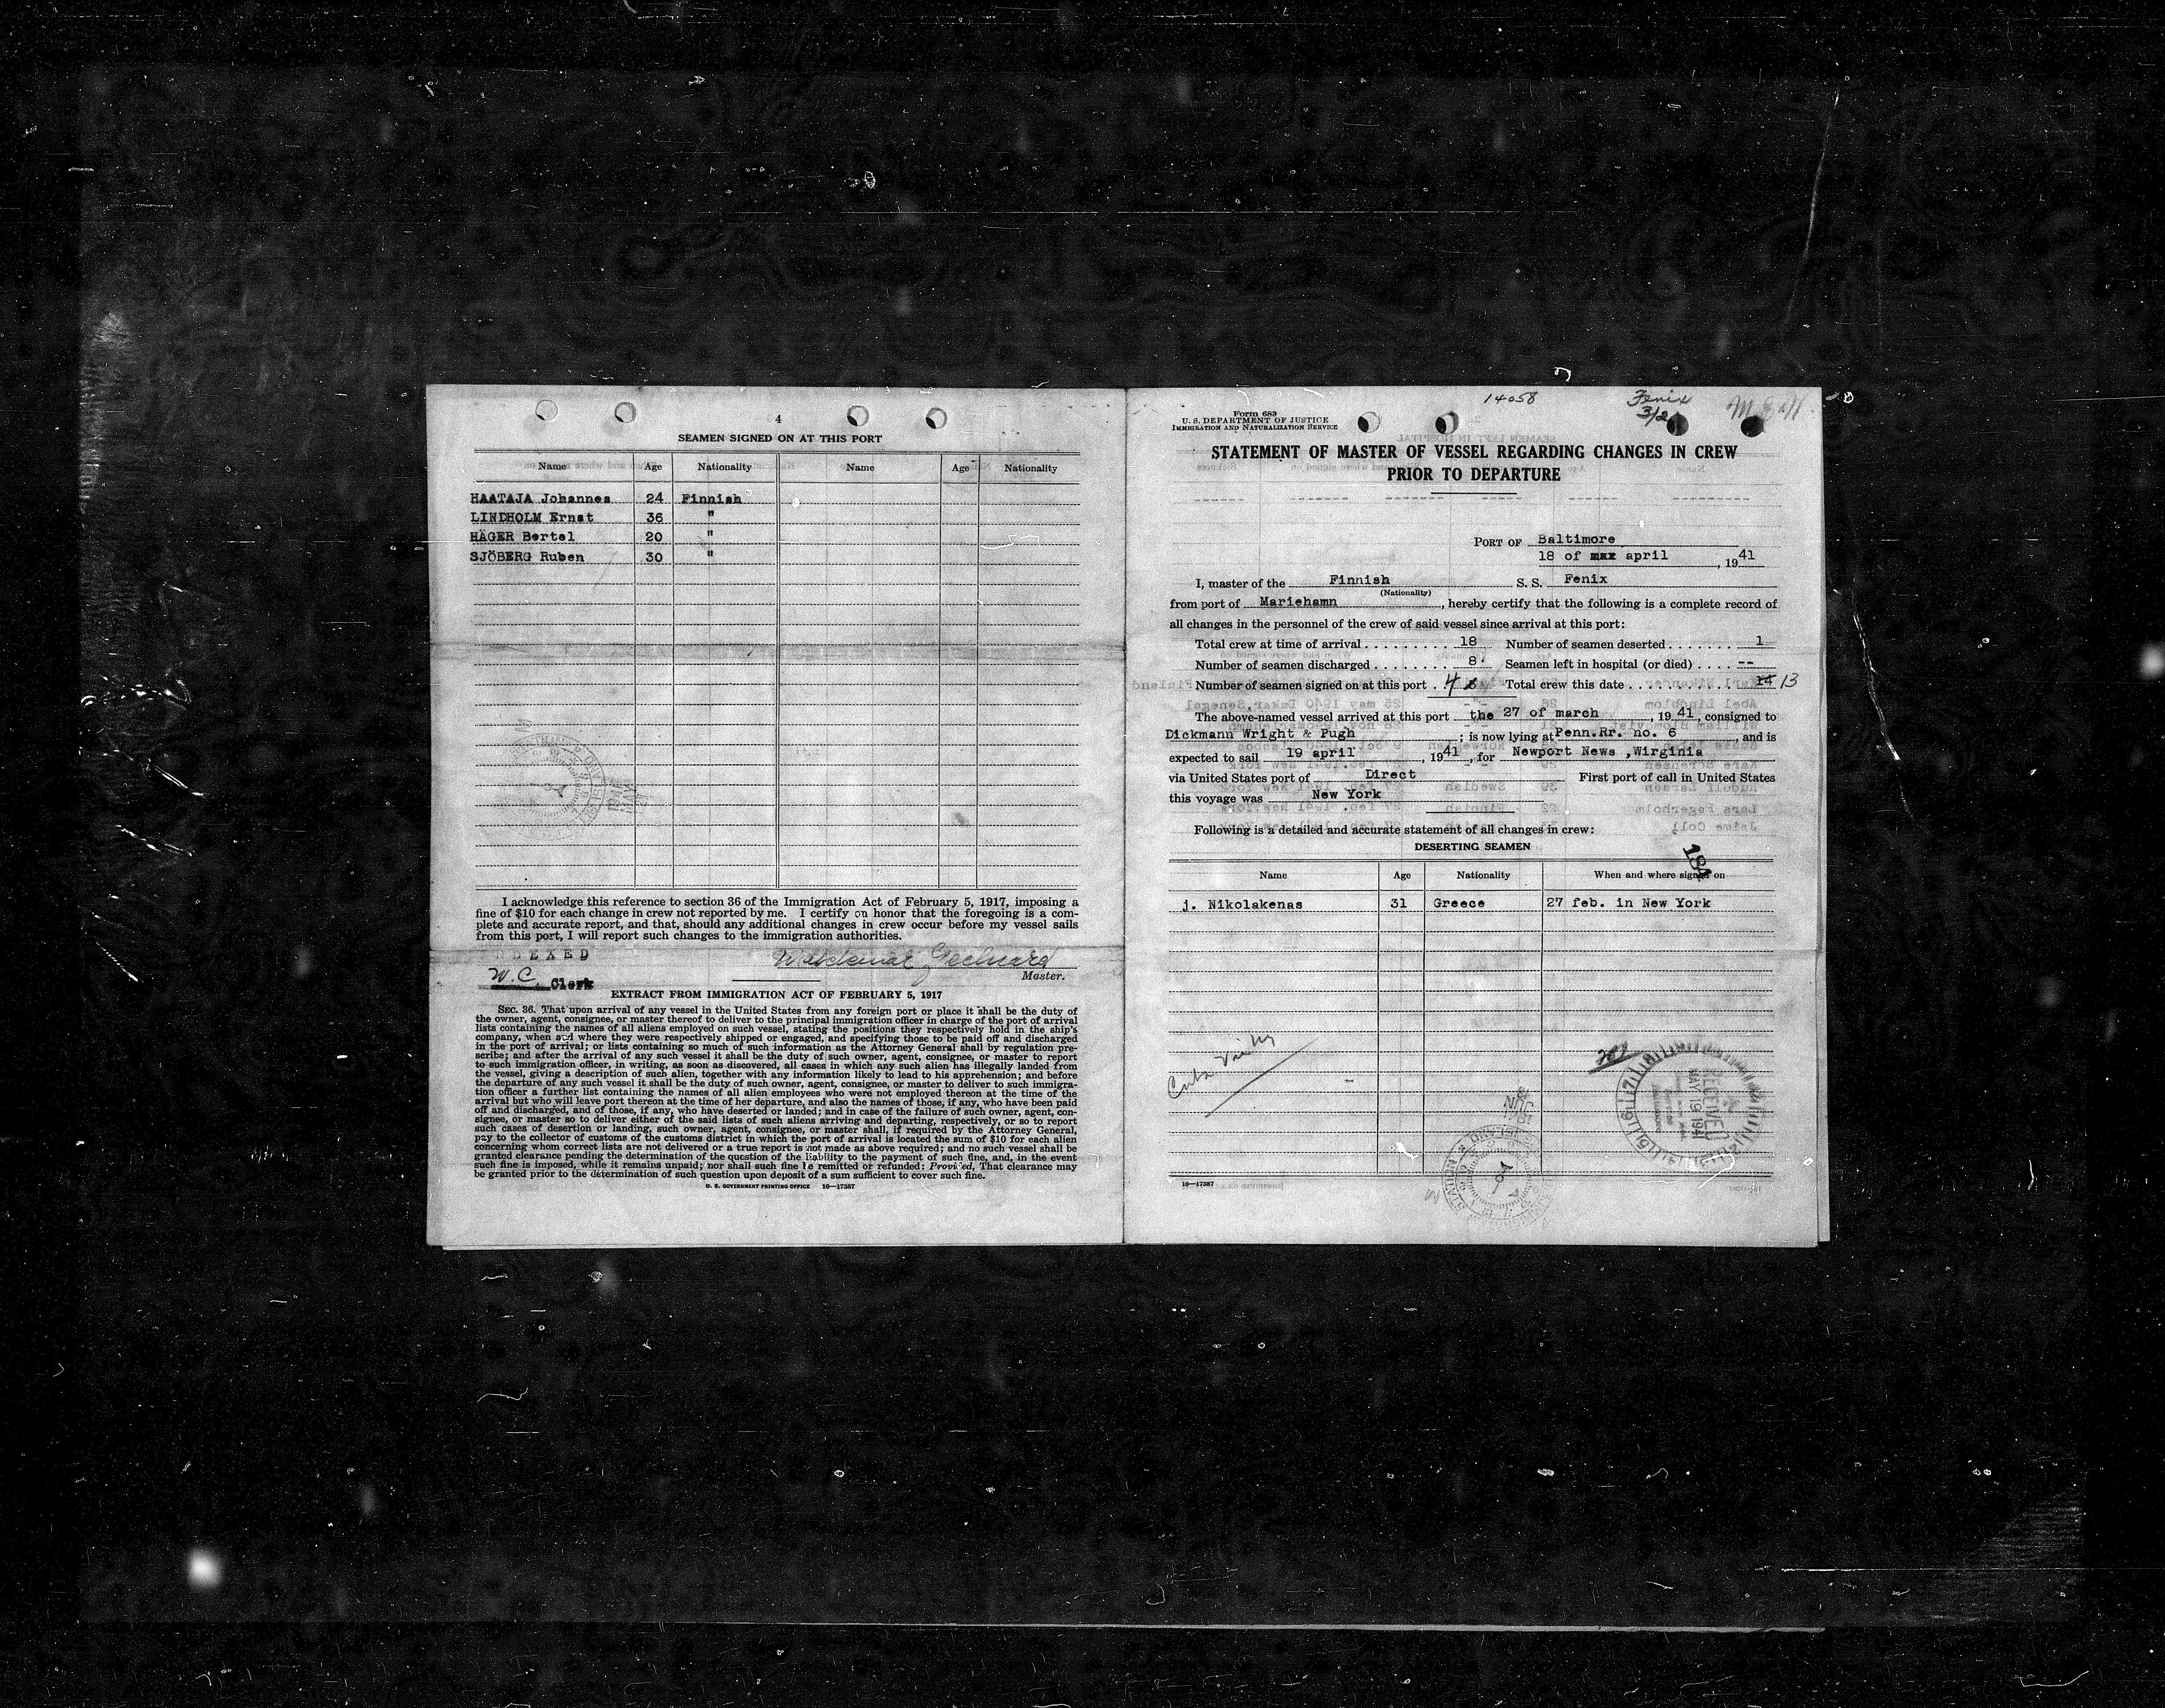 4
SEAMEN SIGNED ON AT THIS PORT
Name Age Nationality Name Age Nationality
HAATAJA Johannes 24 Finnish
LINDHOLM Ernst 36 "
HÄGER Bertel 20 "
SJÖBERG Ruben 30 "
I acknowledge this reference to section 36 of the Immigration Act of February 5, 1917, imposing a
fine of $10 for each change in crew not reported by me. I certify on honor that the foregoing is a com-
plete and accurate report, and that, should any additional changes in crew occur before my vessel sails
from this port, I will report such changes to the immigration authorities.
W.C. Clerk
Master.
EXTRACT FROM IMMIGRATION ACT OF FEBRUARY 5, 1917
SEC. 36. That upon arrival of any vessel in the United States from any foreign port or place it shall be the duty of
the owner, agent, consignee, or master thereof to deliver to the principal immigration officer in charge of the port of arrival
lists containing the names of all aliens employed on such vessel, stating the positions they respectively hold in the ship's
company, when and where they were respectively shipped or engaged, and specifying those to be paid off and discharged
in the port of arrival; or lists containing so much of such information as the Attorney General shall by regulation pre-
scribe; and after the arrival of any such vessel it shall be the duty of such owner, agent, consignee, or master to report
to such immigration officer, in writing, as soon as discovered, all cases in which any such alien has illegally landed from
the vessel, giving a description of such alien, together with any information likely to lead to his apprehension; and before
the departure of any such vessel it shall be the duty of such owner, agent, consignee, or master to deliver to such immigra-
tion officer a further list containing the names of all alien employees who were not employed thereon at the time of the
arrival but who will leave port thereon at the time of her departure, and also the names of those, if any, who have been paid
off and discharged, and of those, if any, who have deserted or landed; and in case of the failure of such owner, agent, con-
signee, or master so to deliver either of the said lists of such aliens arriving and departing, respectively, or so to report
such cases of desertion or landing, such owner, agent, consignee, or master shall, if required by the Attorney General,
pay to the collector of customs of the customs district in which the port of arrival is located the sum of $10 for each alien
concerning whom correct lists are not delivered or a true report is not made as above required; and no such vessel shall be
granted clearance pending the determination of the question of the liability to the payment of such fine, and, in the event
such fine is imposed, while it remains unpaid; nor shall such fine be remitted or refunded: Provided, That clearance may
be granted prior to the determination of such question upon deposit of a sum sufficient to cover such fine.
U. S. GOVERNMENT PRINTING OFFICE 16—17387
14058
Fenix
Form 689
U. S. DEPARTMENT OF JUSTICE
IMMIGRATION AND NATURALIZATION SERVICE
STATEMENT OF MASTER OF VESSEL REGARDING CHANGES IN CREW
PRIOR TO DEPARTURE
PORT OF Baltimore
18 of april, 1941
I, master of the Finnish S. S. Fenix
(Nationality)
from port of Mariehamn, hereby certify that the following is a complete record of
all changes in the personnel of the crew of said vessel since arrival at this port:
Total crew at time of arrival . . . . . . . . . . 18 Number of seamen deserted . . . . . . . 1
Number of seamen discharged . . . . . . . 8 Seamen left in hospital (or died) . . . . --
Number of seamen signed on at this port . . 4 Total crew this date . . . . . . . . . . . . 14 13
The above-named vessel arrived at this port the 27 of march, 1941, consigned to
Dickmann Wright & Pugh; is now lying at Penn.Rr. no. 6, and is
expected to sail 19 april, 1941, for Newport News ,Wirginia
via United States port of Direct First port of call in United States
this voyage was New York
Following is a detailed and accurate statement of all changes in crew:
DESERTING SEAMEN
184
Name Age Nationality When and where signed on
j. Nikolakenas 31 Greece 27 feb. in New York
RECEIVED
MAY 19 1941
16—17387